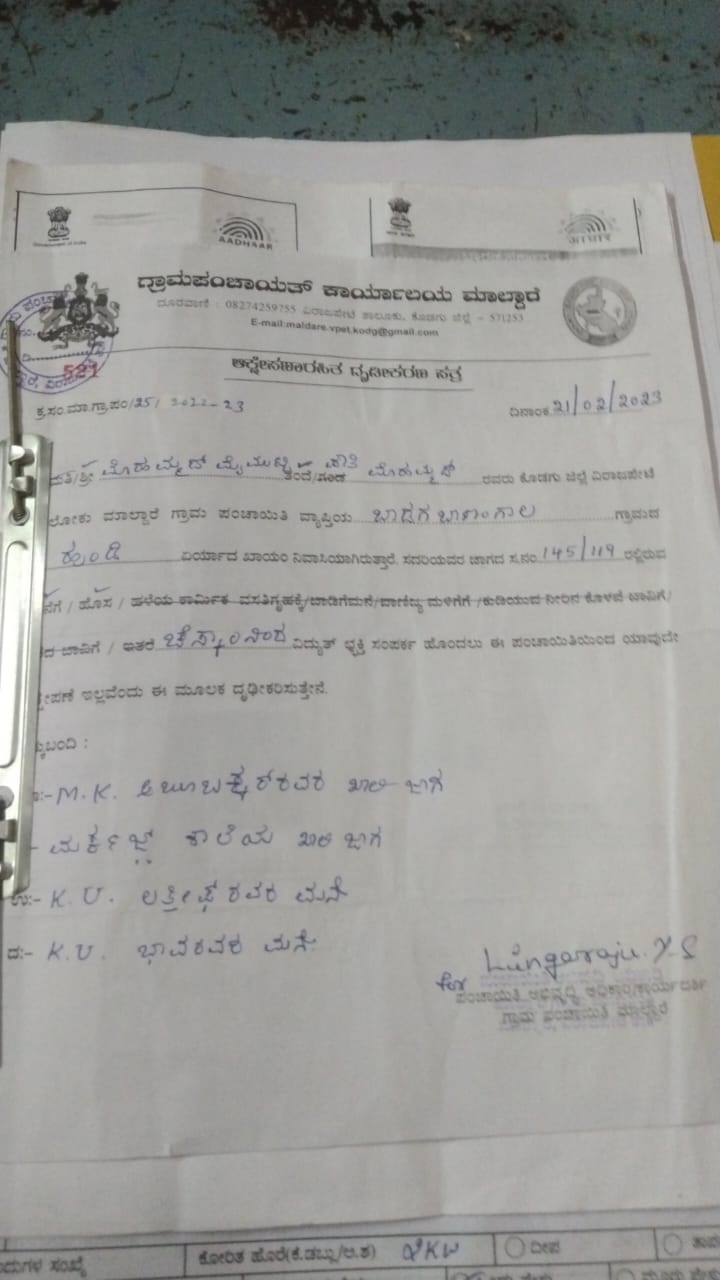 Government of India
AADHAAR
ಗ್ರಾಮಪಂಚಾಯತ್ ಕಾರ್ಯಾಲಯ ಮಾಲ್ದಾರೆ
ದೂರವಾಣಿ : 08274259755 ವಿರಾಜಪೇಟೆ ತಾಲೂಕು, ಕೊಡಗು ಜಿಲ್ಲೆ – 571253
E-mail:maldare.vpet.kodg@gmail.com
521
ಆಕ್ಷೇಪಣಾರಹಿತ ದೃಢೀಕರಣ ಪತ್ರ
ಕ್ರ.ಸಂ.ಮಾ.ಗ್ರಾ.ಪಂ/25/ 2022-23
ದಿನಾಂಕ 21/02/2023
ಮತಿ/ಶ್ರೀ ಮೊಹಮ್ಮದ್ ಮೈಮುಟ್ಟಿ ತಂದೆ/ಗಂಡ ಪಾತಿ ಮೊಹಮ್ಮದ್ ರವರು ಕೊಡಗು ಜಿಲ್ಲೆ ವಿರಾಜಪೇಟೆ
ಲೋಕು ಮಾಲ್ದಾರೆ ಗ್ರಾಮ ಪಂಚಾಯಿತಿ ವ್ಯಾಪ್ತಿಯ ಬಾಡಗ ಬಾಣಂಗಾಲ ಗ್ರಾಮದ
ಹುಂಡಿ ಏರ್ಯಾದ ಖಾಯಂ ನಿವಾಸಿಯಾಗಿರುತ್ತಾರೆ. ಸದರಿಯವರ ಜಾಗದ ಸ.ನಂ 145/119 ರಲ್ಲಿರುವ
ನೆಗೆ / ಹೊಸ / ಹಳೆಯ ಕಾರ್ಮಿಕ ವಸತಿಗೃಹಕ್ಕೆ/ಬಾಡಿಗೆಮನೆ/ವಾಣಿಜ್ಯ ಮಳಿಗೆಗೆ /ಕುಡಿಯುವ ನೀರಿನ ಕೊಳವೆ ಬಾವಿಗೆ/
ದ ಬಾವಿಗೆ / ಇತರೆ ಚೆಸ್ಕಾಂನಿಂದ ವಿದ್ಯುತ್ ಛಕ್ತಿ ಸಂಪರ್ಕ ಹೊಂದಲು ಈ ಪಂಚಾಯಿತಿಯಿಂದ ಯಾವುದೇ
ಕ್ಷೇಪಣೆ ಇಲ್ಲವೆಂದು ಈ ಮೂಲಕ ದೃಢೀಕರಿಸುತ್ತೇನೆ.
ಕ್ಕುಬಂದಿ :
:- M.K. ಅಬೂಬಕ್ಕರ್‌ರವರ ಖಾಲಿ ಜಾಗ
- ಮರ್ಕಜ್ ಶಾಲೆಯ ಖಾಲಿ ಜಾಗ
ಉ:- K.U. ಲತೀಫ್‌ರವರ ಮನೆ
ದ:- K.U. ಭಾವರವರ ಮನೆ
Lingaraju.Y.S
for
ಪಂಚಾಯಿತಿ ಅಭಿವೃದ್ಧಿ ಅಧಿಕಾರಿ/ಕಾರ್ಯದರ್ಶಿ
ಗ್ರಾಮ ಪಂಚಾಯಿತಿ ಮಾಲ್ದಾರೆ
ದುಗಳ ಸಂಖ್ಯೆ ಕೋರಿತ ಹೊರೆ(ಕೆ.ಡಬ್ಲು/ಅ.ಶ) KW ದೀಪ